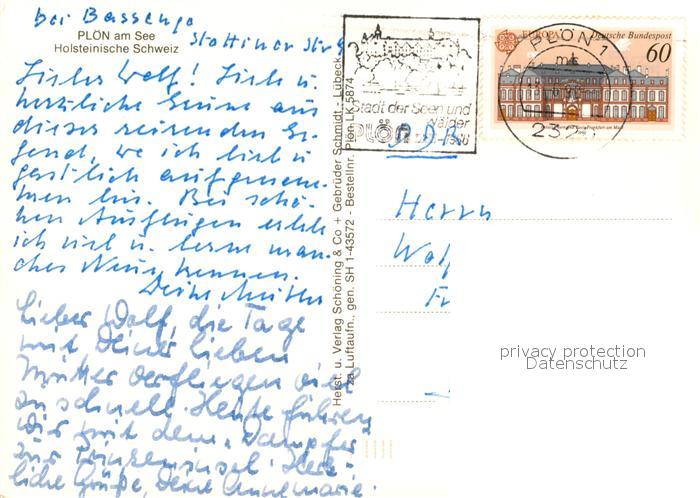 bei Bassenge
PLÖN am See
Holsteinische Schweiz
Stettiner Str 9
Lieber Wolf! Liebe u.
herzliche Grüße aus
dieser reizenden Ge-
gend, wo ich lieb u
gastlich aufgenom-
men bin. Bei schö-
nen Ausflügen erlebe
ich viel u. lerne man-
ches Neue kennen.
Deine Mutter
Lieber Wolf, die Tage
mit Deiner lieben
Mutter verfliegen viel
zu schnell. Heute fuhren
wir mit dem "Dampfer"
zur Prinzeninsel. Herz-
liche Grüße, Deine Annemarie.
Herst. u. Verlag Schöning & Co + Gebrüder Schmidt, Lübeck
za Luftaufn., gen. SH 1-43572 - Bestellnr. Plön LK 5874
Stadt der Seen und
Wälder
PLÖN
EUROPA Deutsche Bundespost
60
PLÖN 1
232
DDR
Herrn
Wolf
Fr
privacy protection
Datenschutz